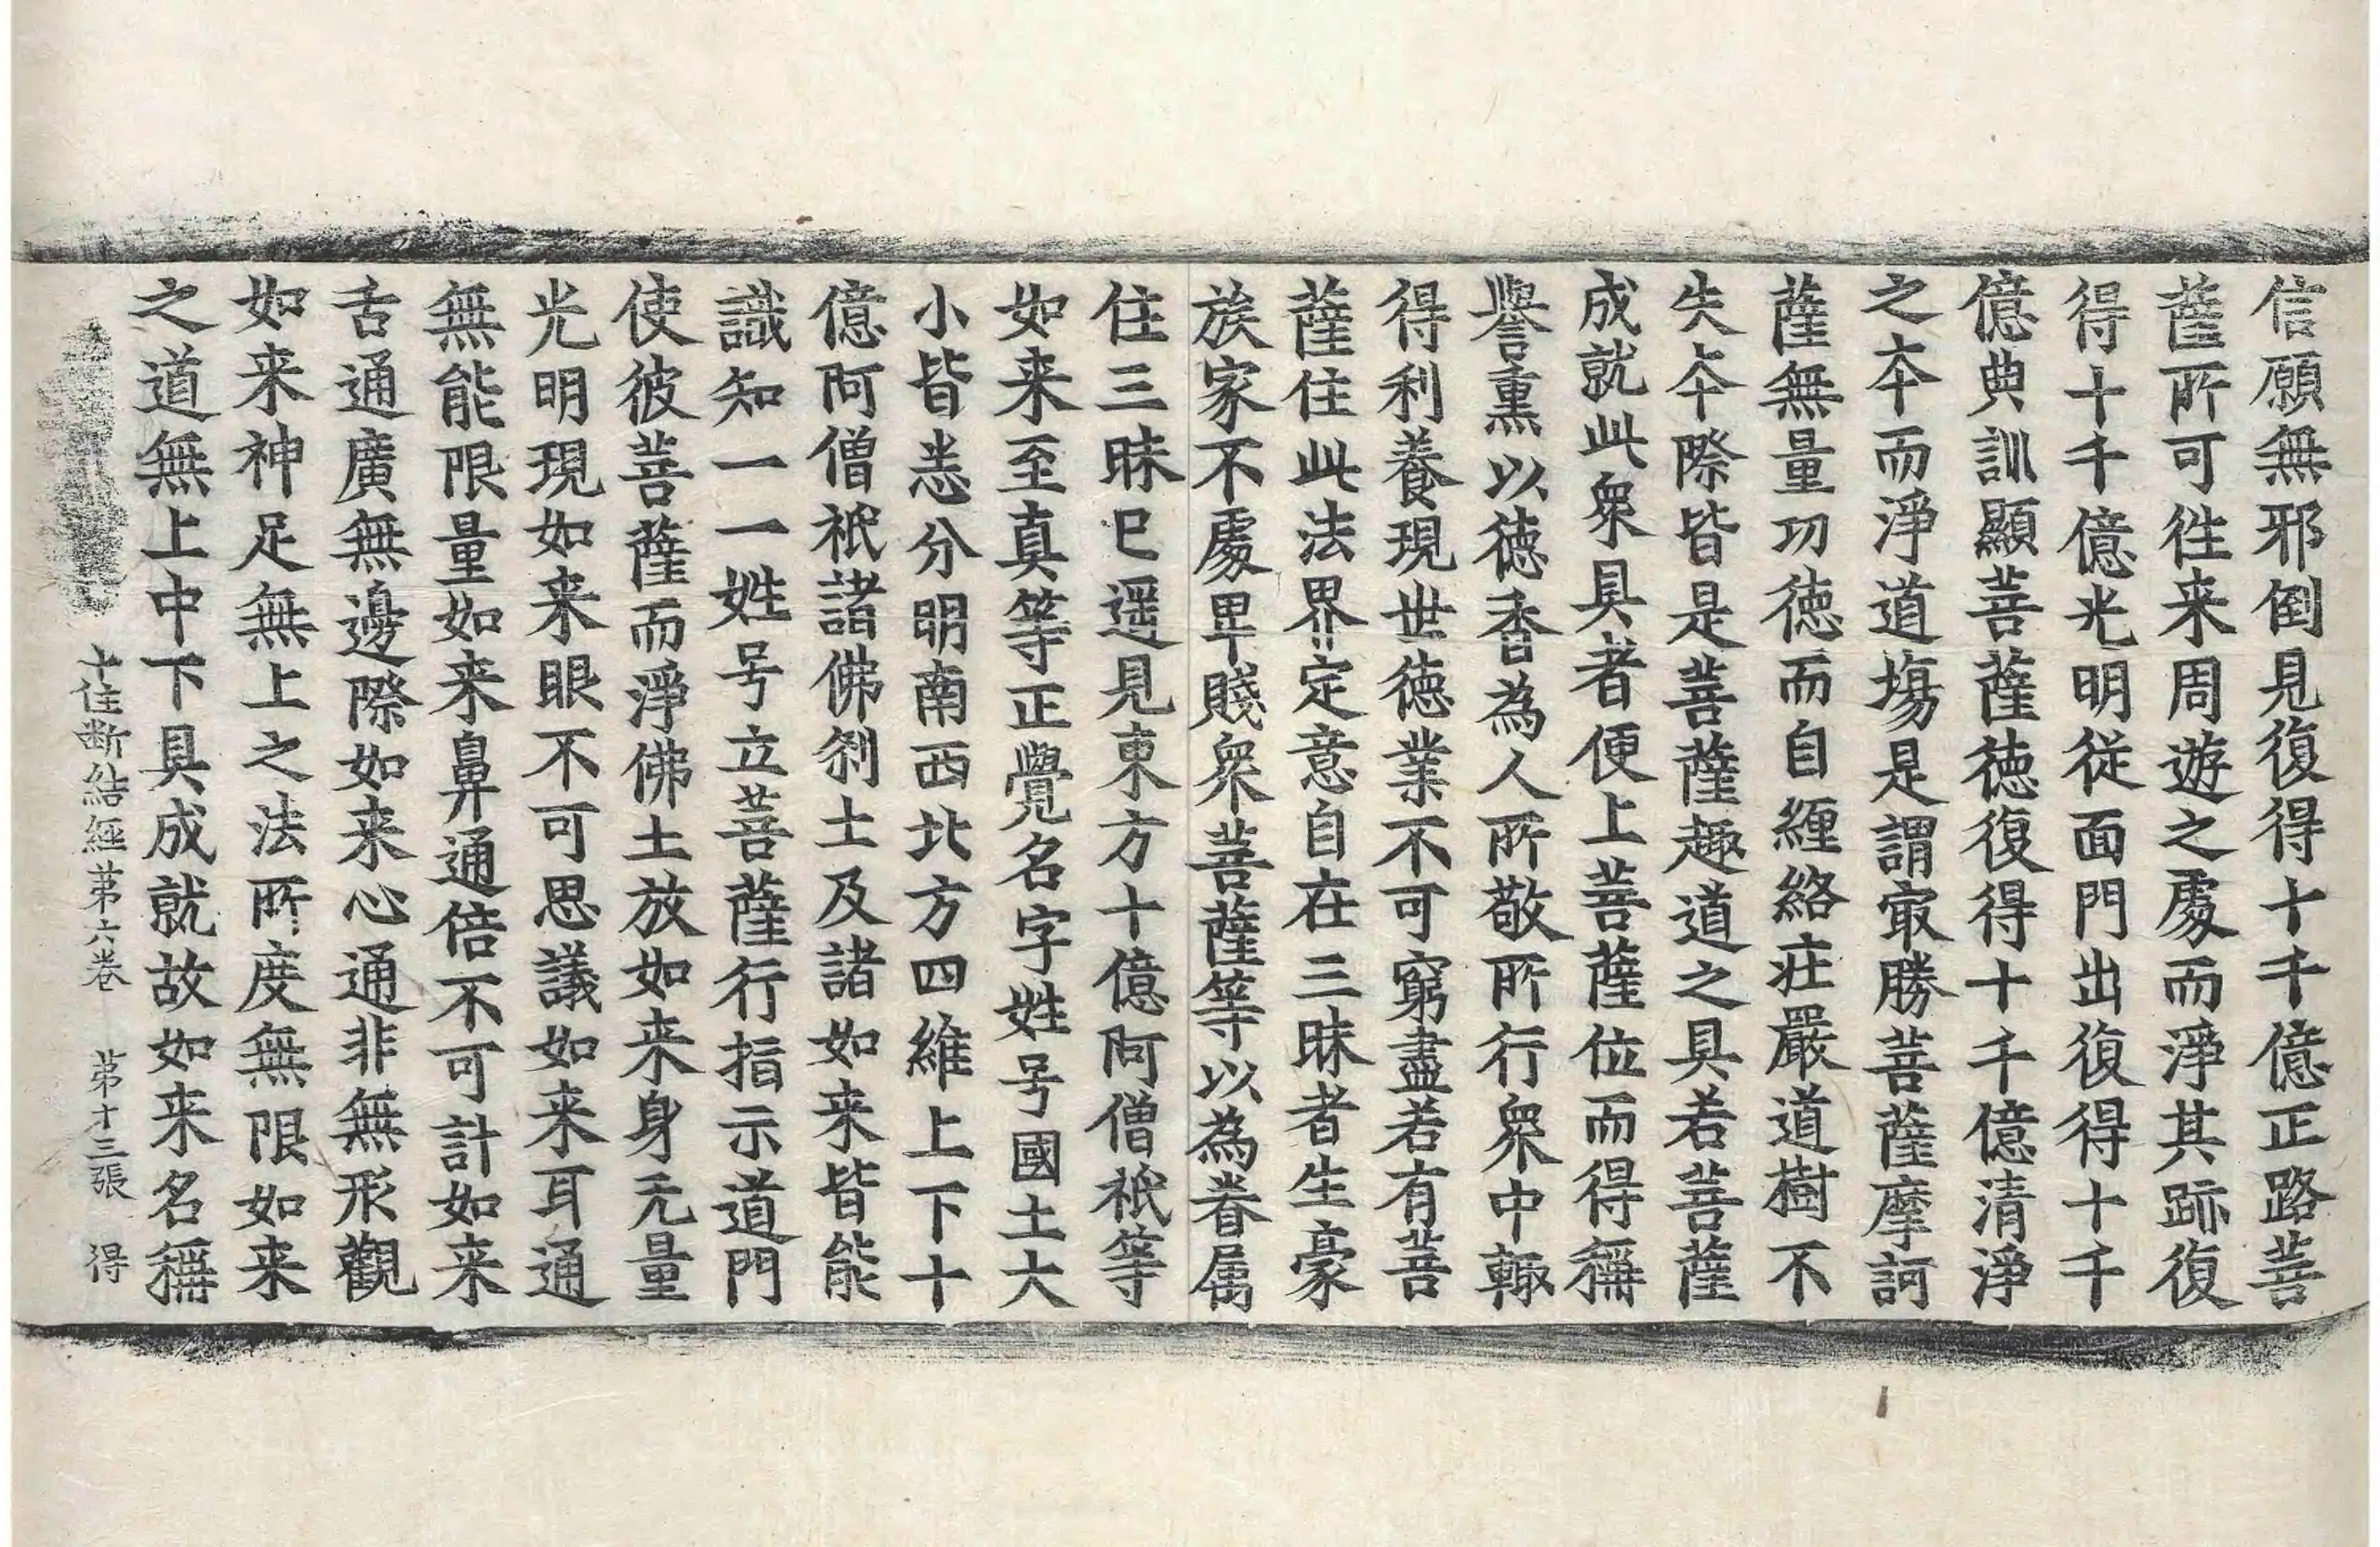 信願無邪倒見復得十千億正路菩
薩所可往来周遊之處而淨其跡復
得十千億光明従面門出復得十千
億典訓顯菩薩徳復得十千億清淨
之夲而淨道塲是謂㝡勝菩薩摩訶
薩無量功徳而自纏絡莊嚴道樹不
失夲際皆是菩薩趣道之具若菩薩
成就此衆具者便上菩薩位而得稱
譽熏以徳香為人所敬所行衆中輙
得利養現世徳業不可窮盡若有菩
薩住此法界定意自在三昧者生豪
族家不處卑賤衆菩薩等以為眷属
住三昧已遥見東方十億阿僧祇等
如来至真等正覺名字姓号國土大
小皆悉分明南西北方四維上下十
億阿僧祇諸佛刹土及諸如来皆能
識知一一姓号立菩薩行指示道門
使彼菩薩而淨佛土放如来身无量
光明現如来眼不可思議如来耳通
無能限量如来鼻通倍不可計如来
舌通廣無邊際如来心通非無形觀
如来神足無上之法所度無限如来
之道無上中下具成就故如来名稱
十住斷結經苐六卷 苐十三張 得